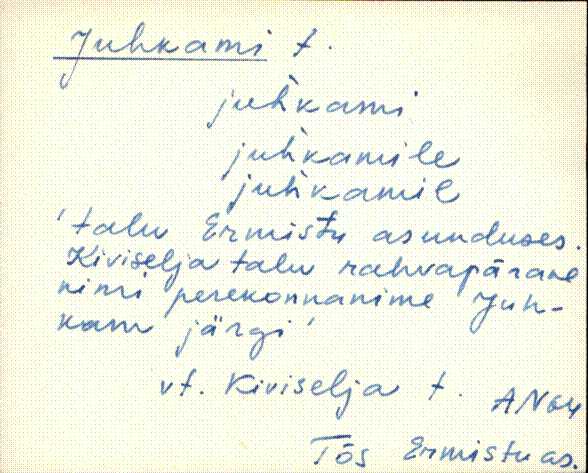 Juhkami t.
juh̀kami
juh̀kamile
juh̀kamil
'talu Ermistu asunduses.
Kiviselja talu rahvapärane
nimi perekonnanime Juh-
kam järgi'
vt. Kiviselja t.
AN64
Tõs Ermistu as.